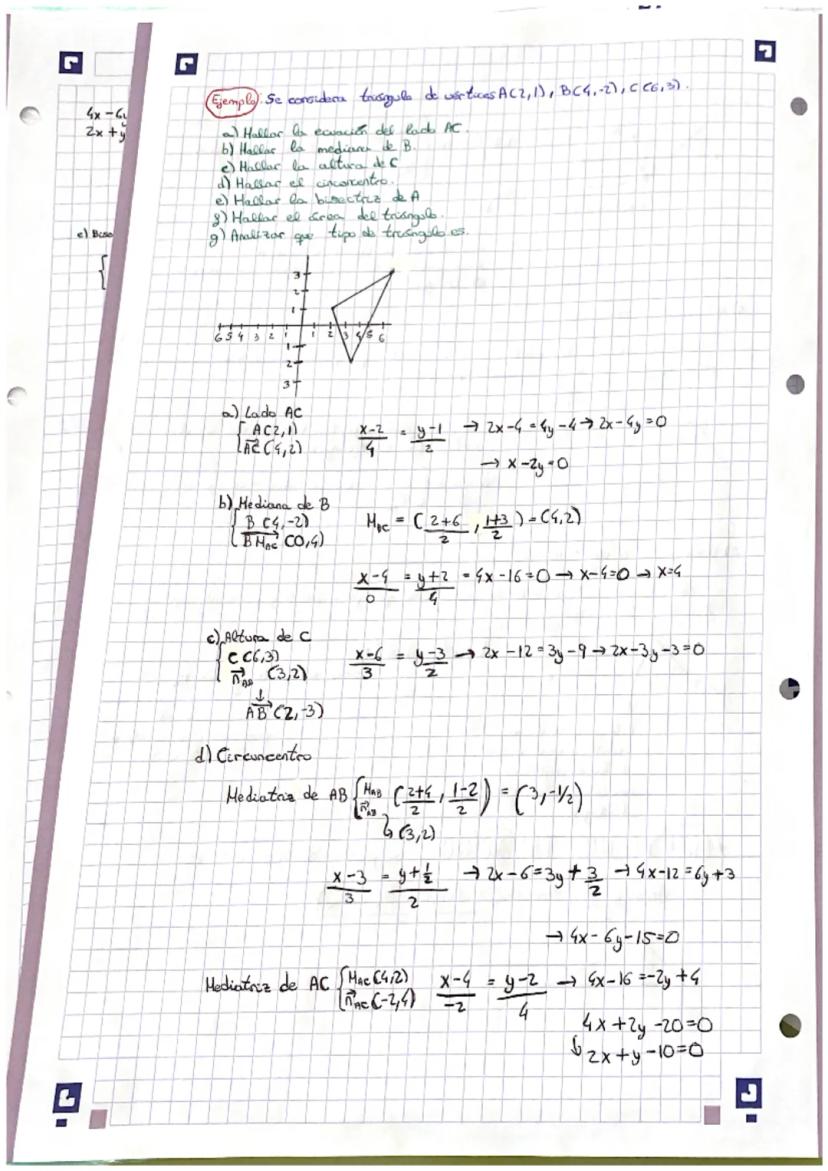 4x-6y
2x+y
e) Bise
Ejemplo: Se considera triángulo de vértices A(2,1), B(4,-2), C(6,3).
a) Hallar la ecuación del lado AC.
b) Hallar la mediana de B.
c) Hallar la altura de C
d) Hallar el circuncentro.
e) Hallar la bisectriz de A
g) Hallar el área del triángulo.
g) Analizar que tipo de triángulo es.
3
2
1
6 5 4 3 2 1 1 2 3 4 5 6
1
2
3
a) Lado AC
{ A(2,1) AC(4,2) (x-2)/4 = (y-1)/2 → 2x-4=4y-4 → 2x-4y=0
→ x-2y=0
b) Mediana de B
{ B(4,-2) BM_AC (0,4) M_BC = (2+6/2, 1+3/2) = (4,2)
(x-4)/0 = (y+2)/4 = 4x-16=0 → x-4=0 → x=4
c) Altura de C
{ C(6,3) n_AB (3,2) (x-6)/3 = (y-3)/2 → 2x-12=3y-9 → 2x-3y-3=0
↓
AB(2,-3)
d) Circuncentro
Mediatriz de AB { M_AB n_AB (2+4/2, 1-2/2) = (3,-1/2)
↳ (3,2)
(x-3)/3 = (y+1/2)/2 → 2x-6=3y+3/2 → 4x-12=6y+3
→ 4x-6y-15=0
Mediatriz de AC { M_AC(4,2) n_AC(-2,4) (x-4)/-2 = (y-2)/4 → 4x-16=-2y+4
4x+2y-20=0
↓ 2x+y-10=0